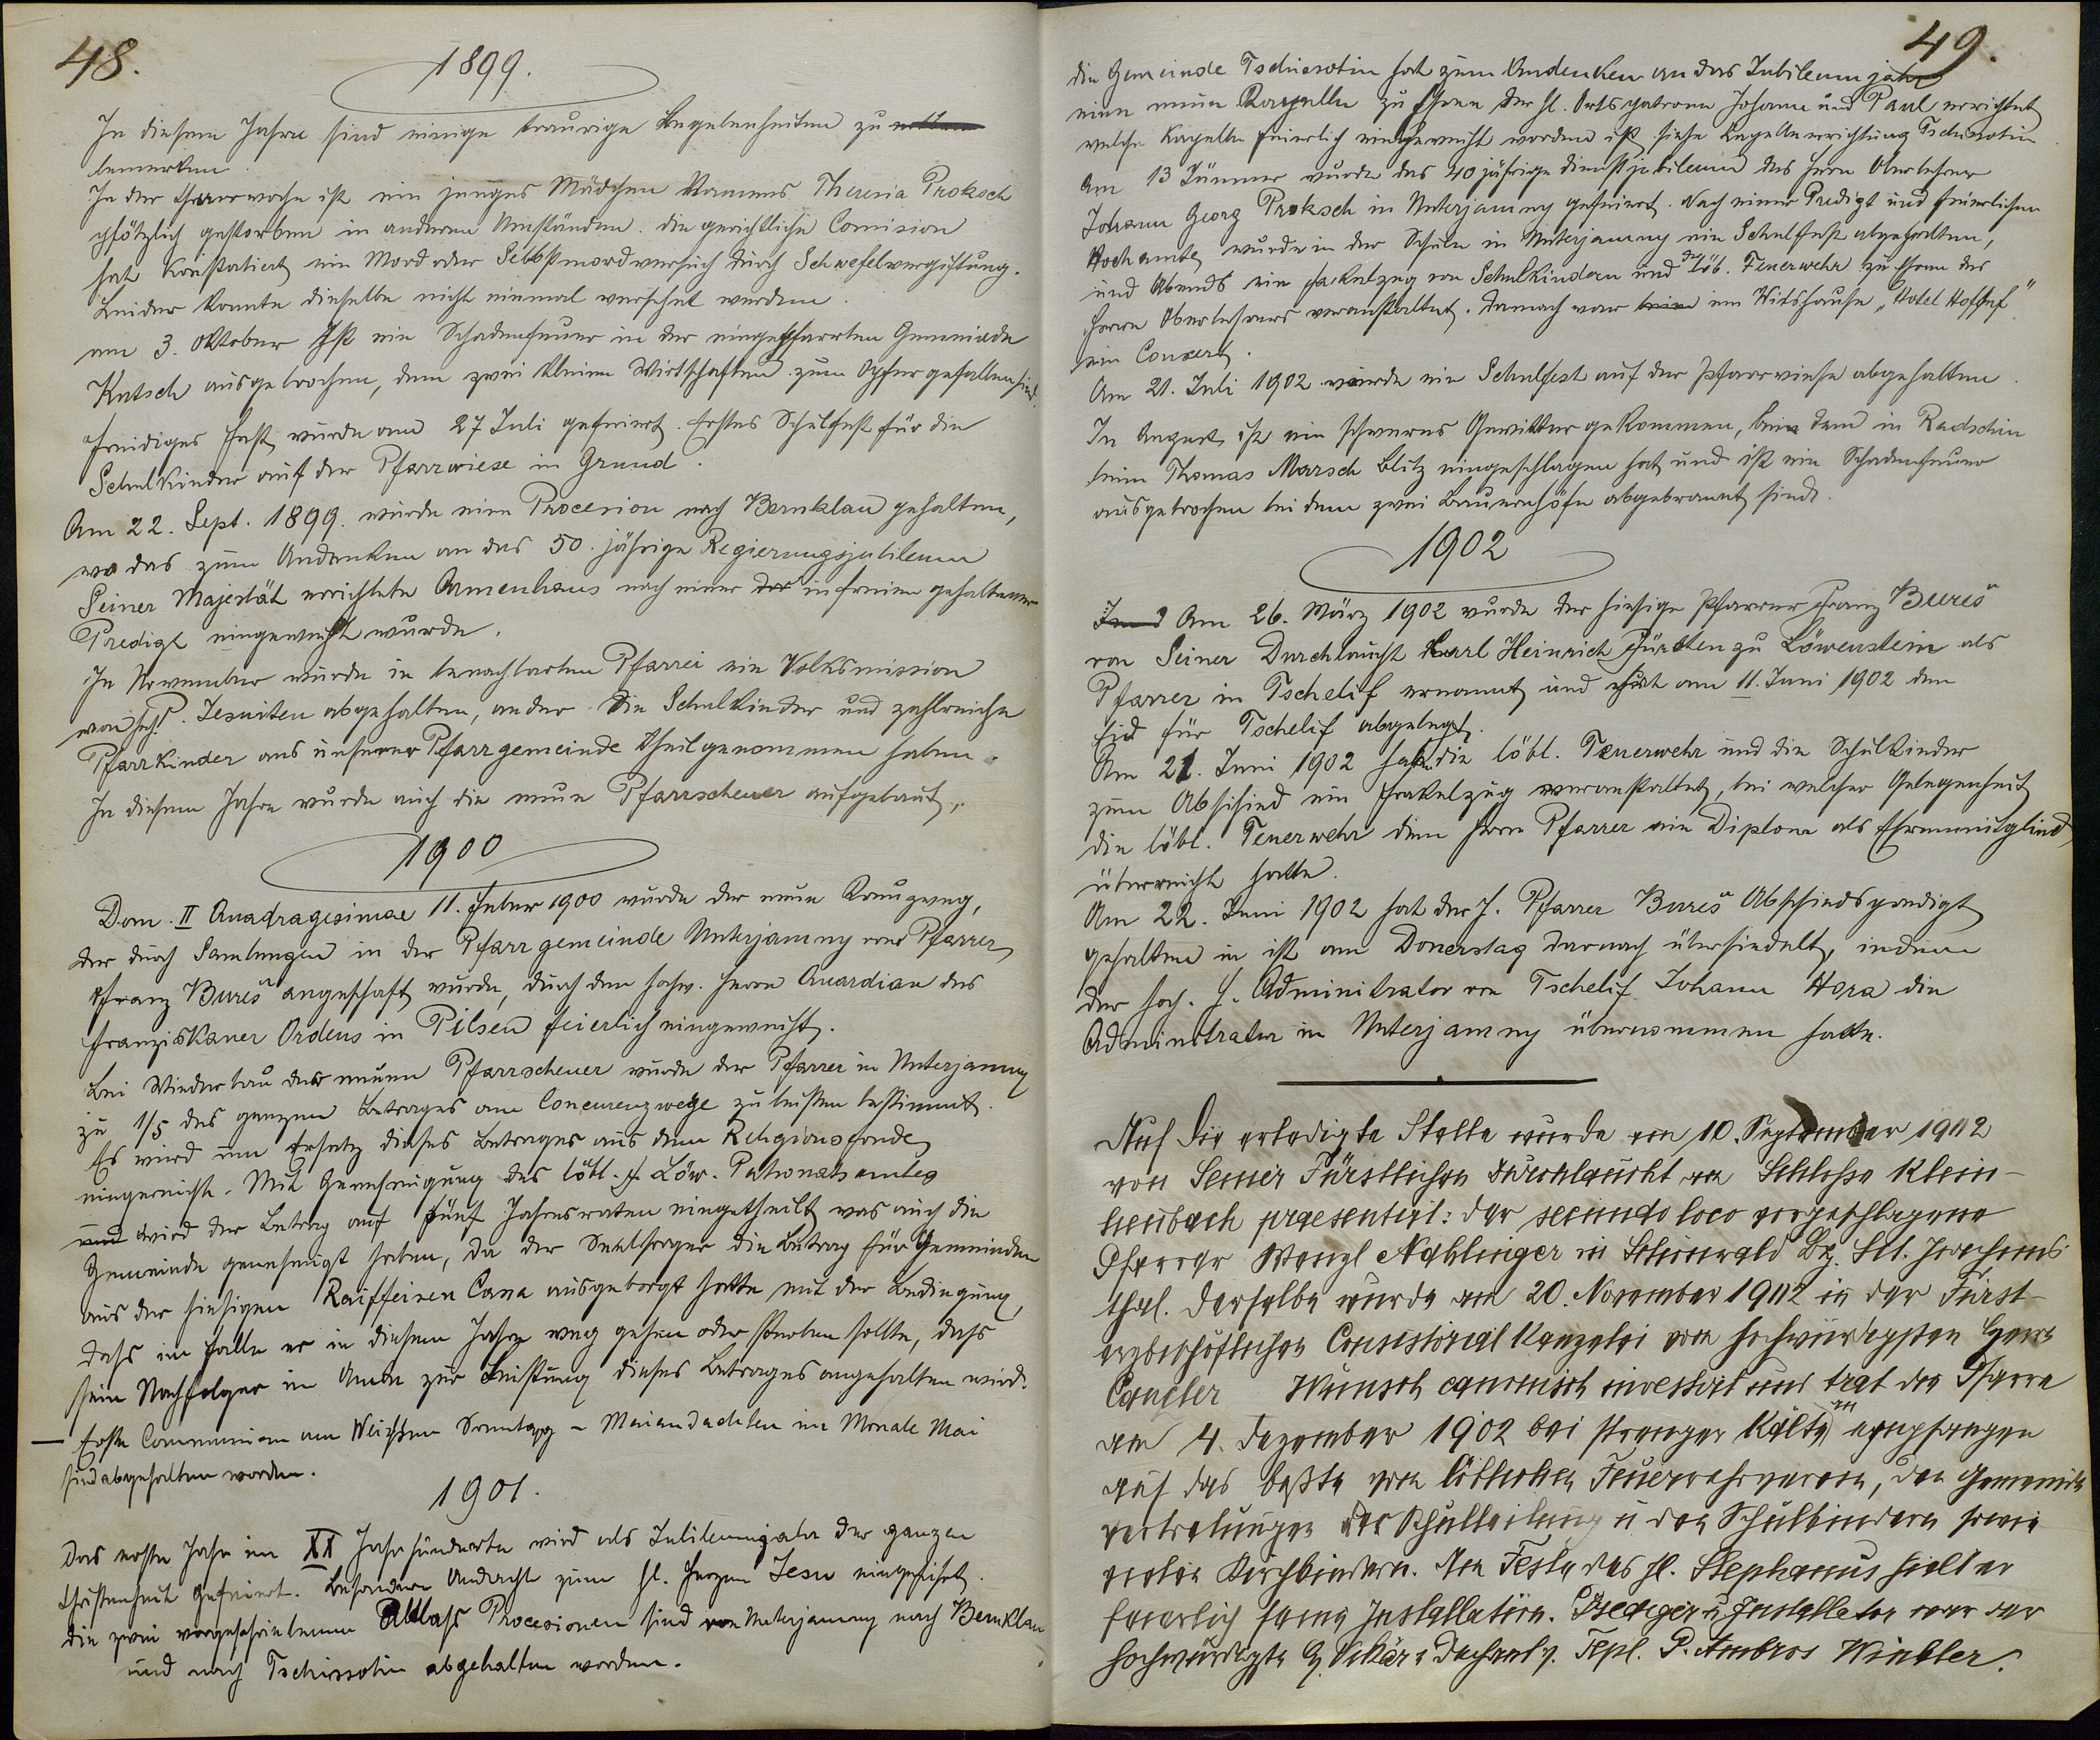 48.
1899.
In diesem Jahre sind einige traurige Begebenheiten zu
bemerken.
In der Charwoche ist ein junges Mädchen Namens Theresia Proksch
plötzlich gestorben in anderen Umständen. die gerichtliche Comision
hat Konstatiert ein Mord oder Selbstmordversuch durch Schwefelvergiftung.
Leider konnte dieselbe nicht einmal versehet werden.
am 3. Oktober Ist ein Schadenfeuer in der eingepfarrten Gemeinde
Kutsch ausgebrochen, dem zwei kleine Wirtschaften zum Opfer gefallen sind.
Freidiges Fest wurde am 27 Juli gefeiert. Erstes Schulfest für die
Schulkinder auf der Pfarrwiese in Grund.
Am 22. Sept. 1899. wurde eine Procesion nach Bernklau gehalten,
wo das zum Andenken an das 50. jährige Regierungsjubileum
Seiner Majestät errichtete Armenhaus nach einer der in freien gehaltener
Predigt eingeweiht wurde.
In November wurde in benachbarten Pfarrei ein Volksmission
von P. Jesuiten abgehalten, an der die Schulkinder und zahlreiche
Pfarrkinder aus unserer Pfarrgemeinde theilgenommen haben.
In diesem Jahre wurde auch die neue Pfarrscheuer aufgebaut.
1900
Dom. II Quadragesimae 11. Feber 1900 wurde der neue Kreuzweg,
der durch Samlungen in der Pfarrgemeinde Unterjamny vom Pfarrer
Franz Bureš angeschaft wurde, durch den hochw. Herrn Quardian des
Franziskaner Ordens in Pilsen feierlich eingeweiht.
Bei Wiederbau der neuen Pfarrscheuer wurde der Pfarrer in Unterjamny
zu 1/5 des ganzen Betrages am Concurenzwege zu leisten bestimmt.
Es wird um Ersatz dieses Betrages aus dem Religionsfonde
eingereicht. Mit Genehmigung des löbl. f. Löw. Patronatsamtes
und wird der Betrag auf fünf Jahresraten eingetheilt was auch die
Gemeinde genehmigt haben, da der Seelsorger die Betrag für Gemeinden
aus der hiesigen Raiffeisen Cassa ausgeborgt hatte mit der Bedingung,
dass im Falle er in diesem Jahre weg gehen oder sterben sollte, dass
sein Nachfolger im Amte zur Leistung dieses Betrages angehalten wird.
— Erste Communion am Weissen Sonntage – Maiandachten im Monate Mai
sind abgehalten worden.
1901.
Das erste Jahr im XX Jahrhunderte wird als Jubileumsjahr der ganzen
Christenheit gefeiert. Besondere Andacht zum hl. Herzen Jesu eingeführt.
die zwei vorgeschriebenen Ablass Procesionen sind von Unterjamny nach Bernklau
und nach Tschissotin abgehalten worden.
49.
die Gemeinde Tschiesotin hat zum Andenken an das Jubileumjahr
eine neue Kapelle zu Ehren der hl. Ortspatrone Johann und Paul errichtet
welche Kapelle feierlich eingeweiht worden ist siehe Kapellerrichtung Tschisotin
Am 13 Jänner wurde das 40 jährige Dienstjubileum des Herrn Oberlehrer
Johann Georg Proksch in Unterjamny gefeiert. Nach einer Predigt und feierlichen
Hochamte wurde in der Schule in Unterjamny ein Schulfest abgehalten,
und Abends ein Fakelzug von Schulkindern und der Löb. Feuerwehr zu Ehren des
Herrn Oberlehrers veranstaltet. Darnach war im Wirtshause „Hotel
ein Concert.
Am 21. Juli 1902 wurde ein Schulfest auf der Pfarrwiese abgehalten.
In August ist ein schweres Gewitter gekommen, bei dem in Radschin
beim Thomas Marsch Blitz eingeschlagen hat und ist ein Schadenfeuer
ausgebrochen bei dem zwei Bauernhöfe abgebrannt sind.
1902
Am 26. März 1902 wurde der hiesige Pfarrer Franz Bureš
von Seiner Durchlaucht Karl Heinrich Fürsten zu Löwenstein als
Pfarrer in Tschelif ernannt und hat am 11. Juni 1902 den
Eid für Tschelif abgelegt.
Am 21. Juni 1902 hat die löbl. Feuerwehr und die Schulkinder
zum Abschied ein Fakelzug veranstaltet, bei welcher Gelegenheit
die löbl. Feuerwehr dem Herrn Pfarrer ein Diplom als Ehrenmitglied
überreicht hatte.
Am 22. Juni 1902 hat der H. Pfarrer Bureš Abschiedspredigt
gehalten u ist am Donerstag darnach übersiedelt, indem
der hoch. H. Adminitrator von Tschelif Johann Hora die
Adminitratur in Unterjamny übernommen hatte.
Auf die erledigte Stelle wurde am 10. September 1902
von Seiner Fürstlichen Durchlaucht am Schlosse Klein-
heubach praesentirt: der secundo loco vorgeschlagene
Pfarrer Wenzl Nahlinger in Schönwald Bz. Skt. Joachims-
thal. Derselbe wurde am 20. November 1902 in der Fürst-
erzbischöflichen Consistorial Kanzelei vom hochwürdigsten Herrn
Canzler Wünsch canonisch investirt und trat die Pfarre
am 4. Dezember 1902 bei strenger Kälte an empfangen
auf das beßte vom löblichen Feuerwehrverein, den Gemeinde
vertretungen der Schulleitung u den Schulkindern sowie
vielen Kirchkindern. Am Feste des hl. Stephanus hielt er
feierlich seine Installation. Prediger u Installator war der
hochwürdigste H. Vikär u Dechant v. Tepl. P. Ambros Winkler.